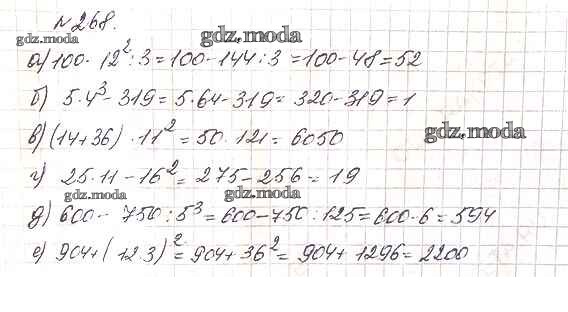 №268.
gdz.moda gdz.moda
а) 100 - 12² : 3 = 100 - 144 : 3 = 100 - 48 = 52
б) 5 · 4³ - 319 = 5 · 64 - 319 = 320 - 319 = 1
в) (14 + 36) · 11² = 50 · 121 = 6050
gdz.moda
г) 25 · 11 - 16² = 275 - 256 = 19
gdz.moda gdz.moda
д) 600 - 750 : 5³ = 600 - 750 : 125 = 600 - 6 = 594
е) 904 + (12 · 3)² = 904 + 36² = 904 + 1296 = 2200